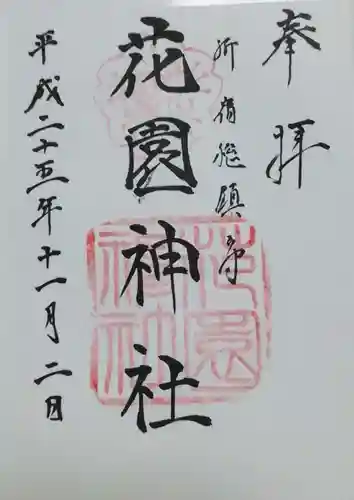 奉拝
新宿総鎮守
花園神社
平成二十五年十一月二日
花園神社